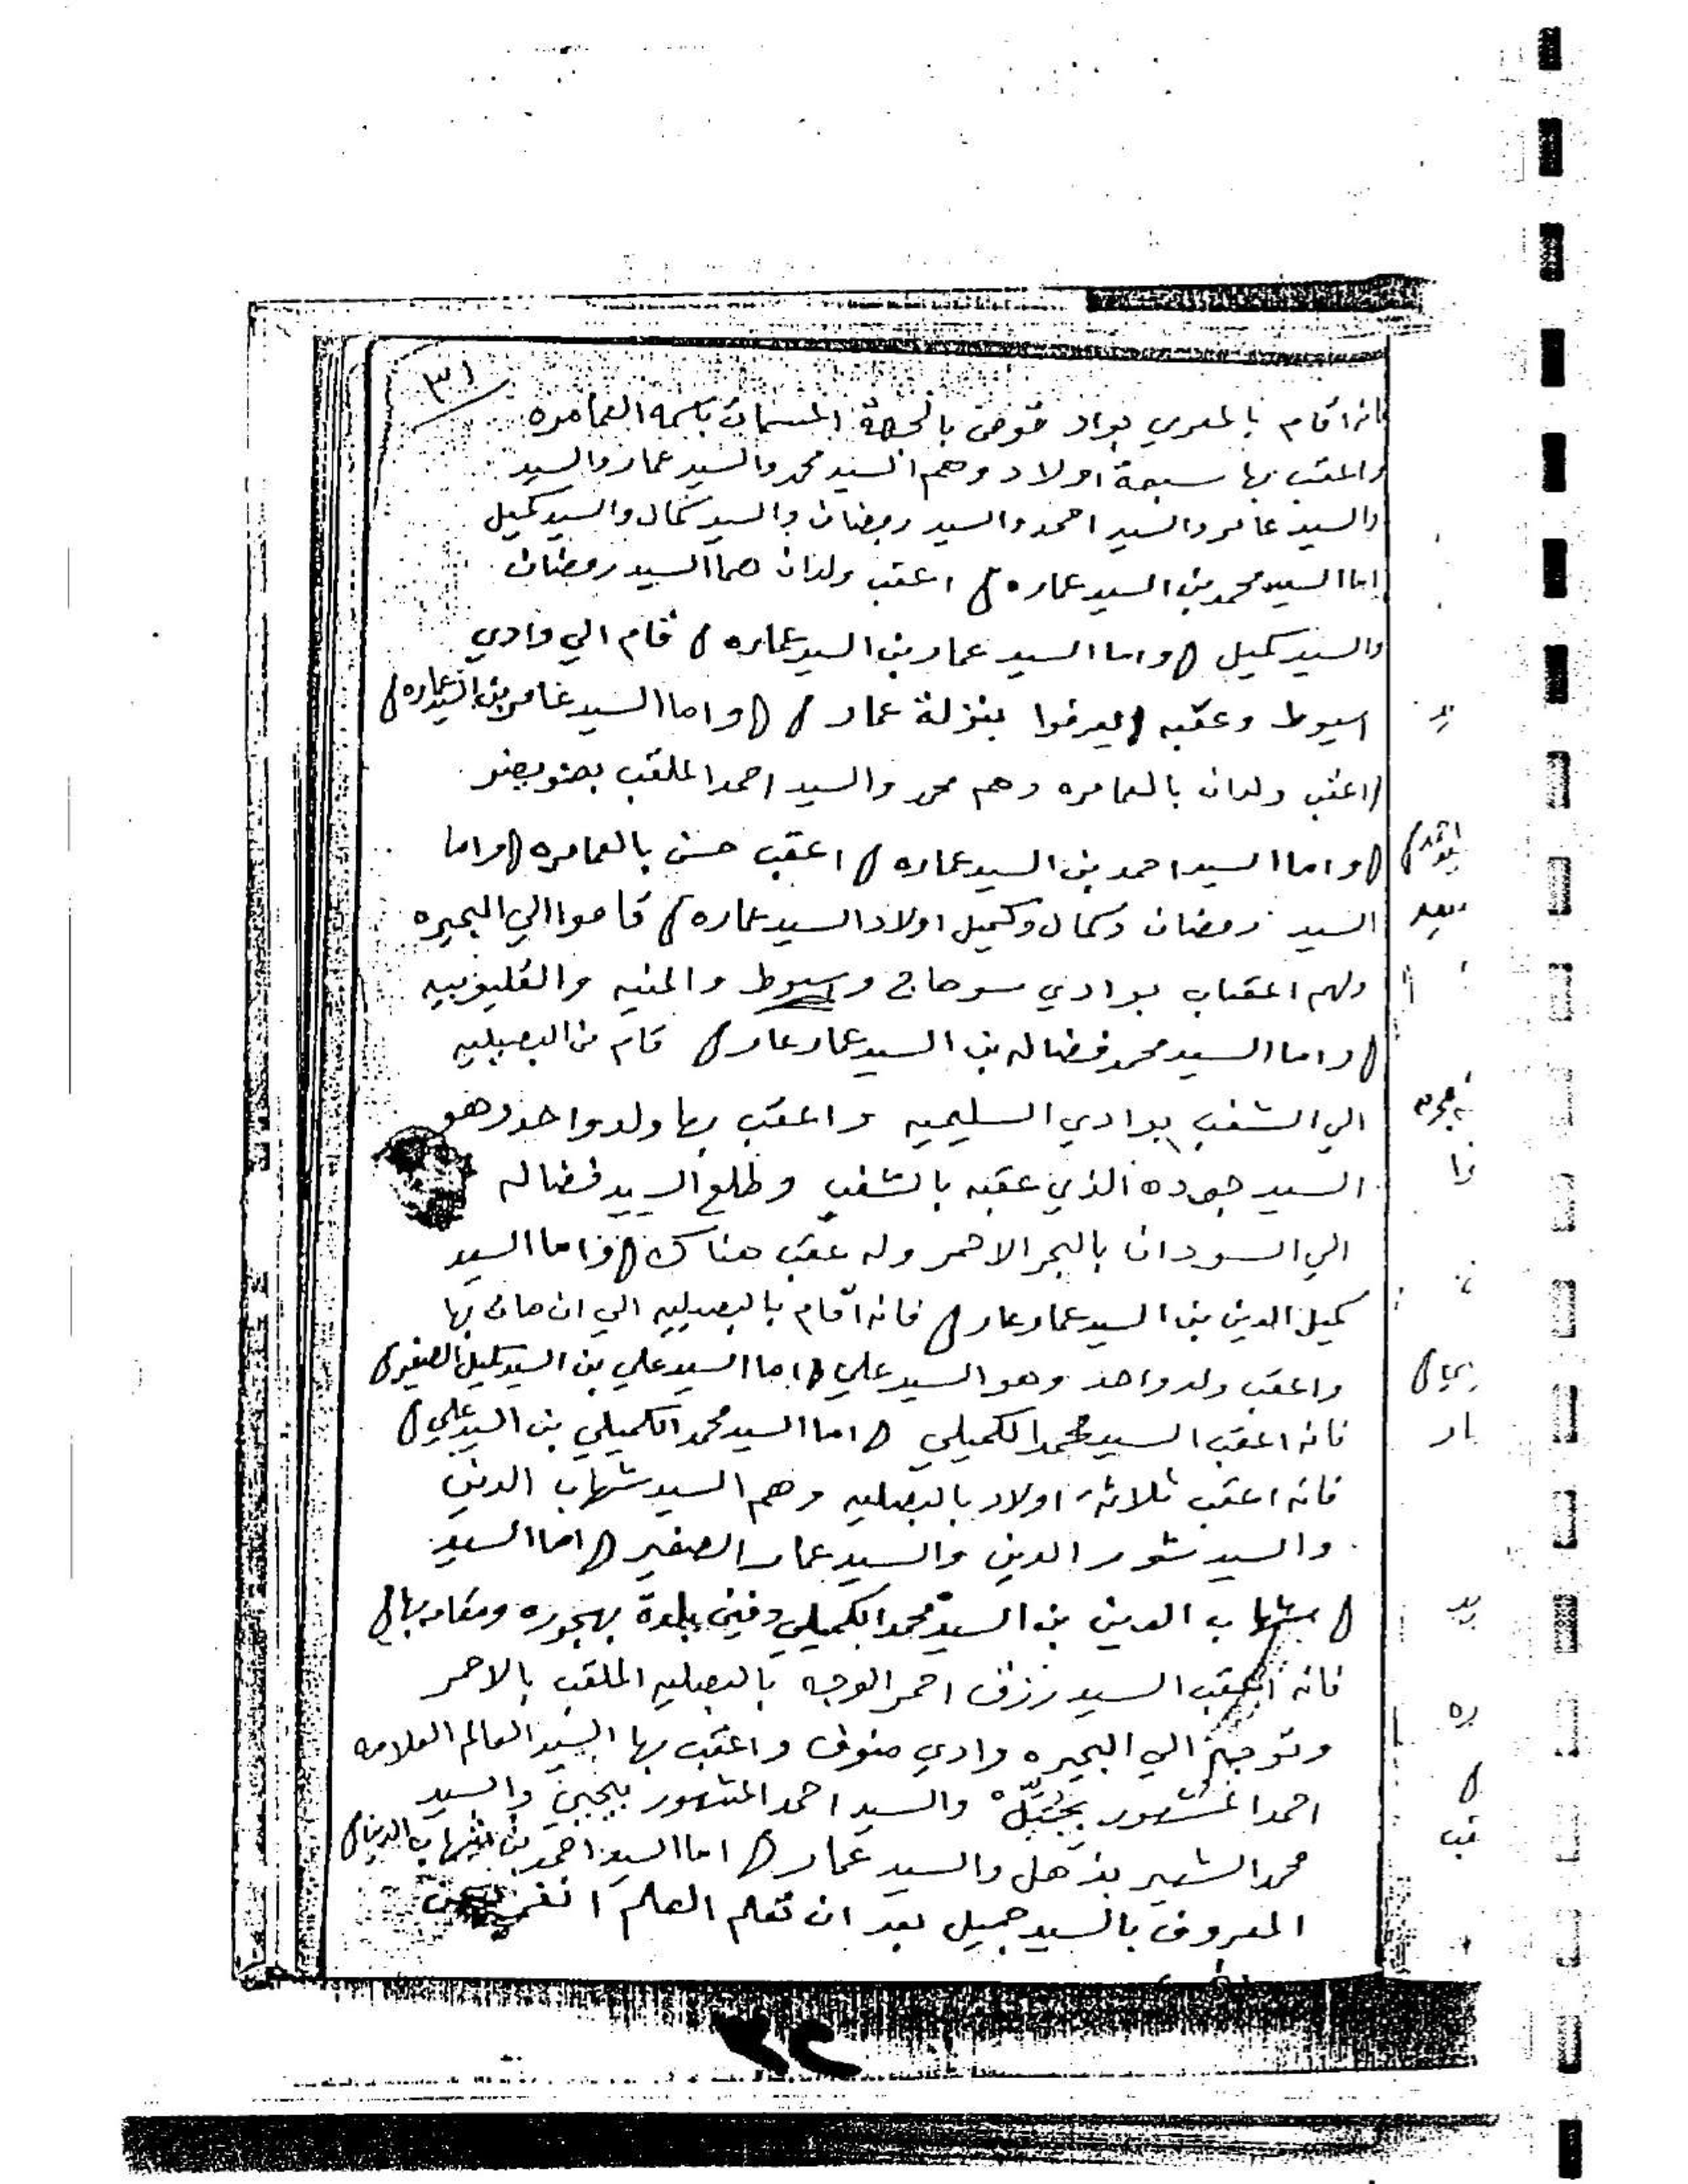 ٣١
فانه اقام بالمعري بواد قوص بالجهة المسمات باسمه العمامره
واعقب بها سبعة اولاد وهم السيد محمد والسيد عمار والسيد
والسيد عامر والسيد احمد والسيد رمضان والسيد كمال والسيد كميل
اما السيد محمد بن السيد عماره اعقب ولدان هما السيد رمضان
والسيد كميل واما السيد عمار بن السيد عماره قام الي وادي
اسيوط وعقبه ليعرفوا بنزلة عمار واما السيد عامر بن السيد عماره
اعقب ولدان بالعمامره وهم محمد والسيد احمد الملقب
واما السيد احمد بن السيد عماره اعقب حسن بالعمامره واما
السيد رمضان وكمال وكميل اولاد السيد عماره قاموا الي البحيره
ولهم اعقاب بوادي سوهاج وسيوط والمنيه والقليوبيه
واما السيد محمد فضاله بن السيد عمار عمار قام من البصيليه
الي الشغب بوادي السليميه واعقب بها ولد واحد وهو
السيد جوده الذي عقبه بالشغب وطلع السيد فضاله
الي السودان بالبحر الاحمر وله عقب هناك واما السيد
كميل الدين بن السيد عمار عمار فانه اقام بالبصيليه الي ان مات بها
واعقب ولد واحد وهو السيد علي اما السيد علي بن السيد كميل الصغير
فانه اعقب السيد محمد الكميلي اما السيد محمد الكميلي بن السيد علي
فانه اعقب ثلاثة اولاد بالبصليه وهم السيد شهاب الدين
والسيد نور الدين والسيد عمار الصغير اما السيد
شهاب الدين بن السيد محمد الكميلي دفين بلدة بهجوره ومقامه بها
فانه اعقب السيد رزق احمر الوجه بالبصليه الملقب بالاحمر
وتوجه الي البحيره وادي منوف واعقب بها السيد العالم العلامه
احمد المشهور والسيد احمد المشهور والسيد
محمد الشهير بذهل والسيد عمار اما السيد احمد بن شهاب الدين
المعروف بالسيد جميل بعد ان تعلم العلم
٣٢